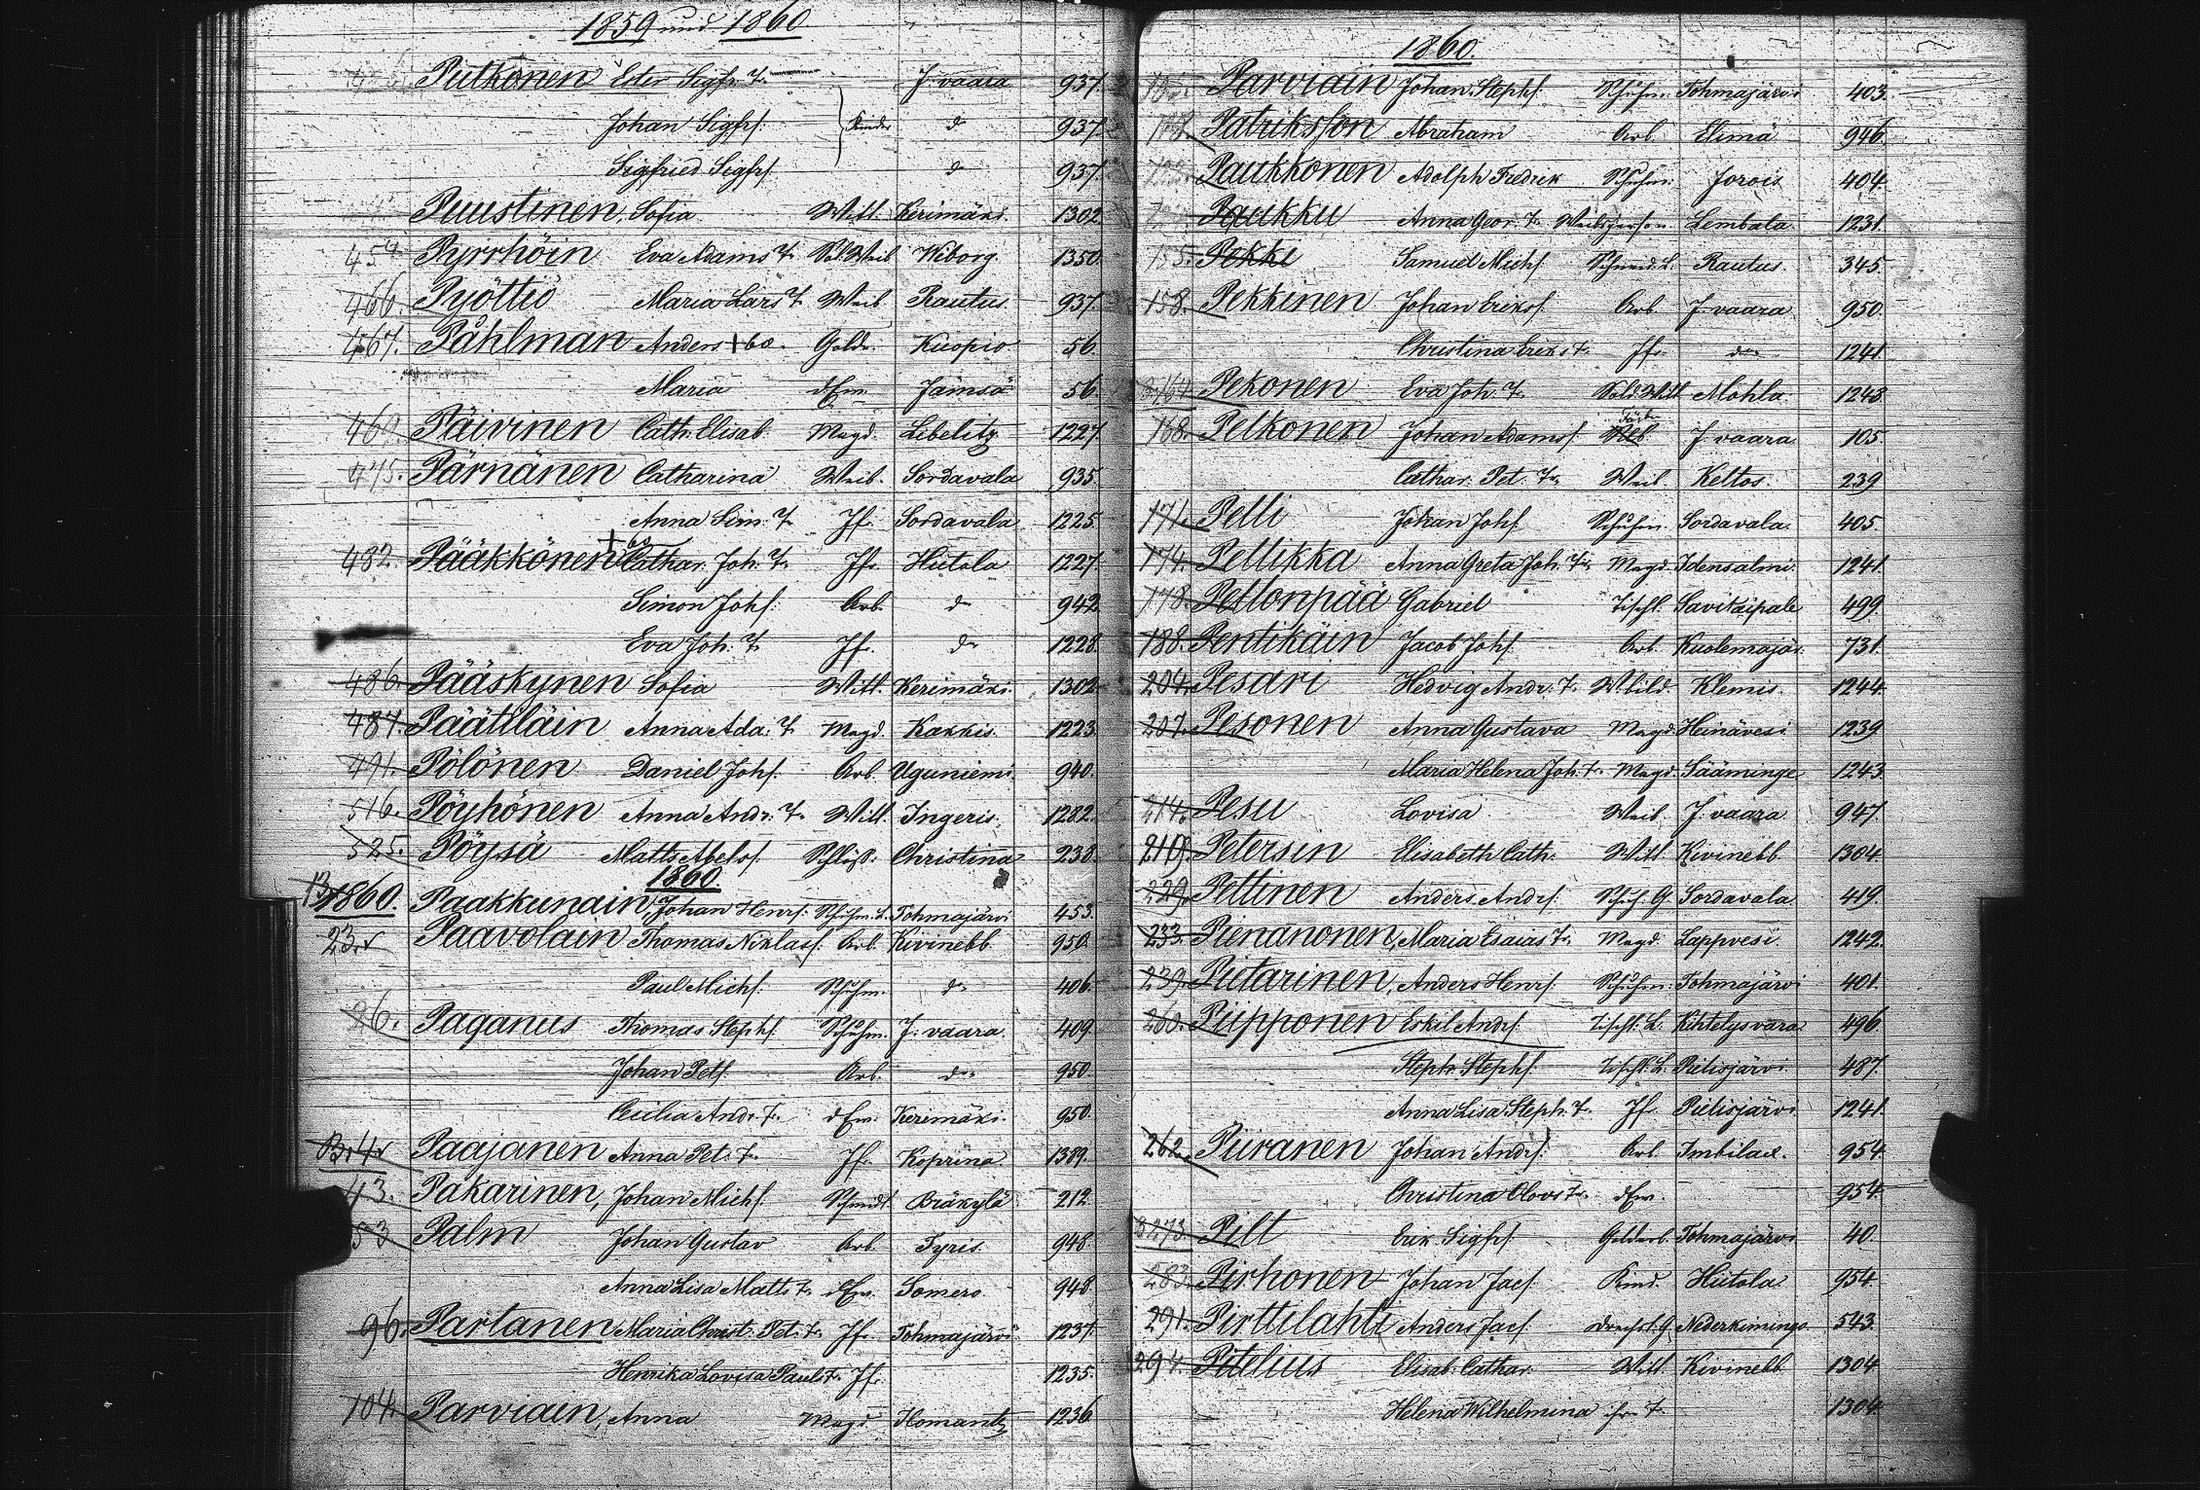 1859 und 1860
Putkonen Ester Sigfr. T. J. vaara 937.
Johan Sigfrs. Kinder d 937.
Sigfried Sigfrs. d 937.
Puustinen, Sofia Witt. Kerimäki. 1302.
454 Pyrrhöin Eva Adams T. Sol. Weib Wiborg. 1350.
466. Pyöttiö Maria Lars T. Weib. Rautus. 937.
467. Påhlman Anders +60. Golds. Kuopio 56.
Maria d. Ew. Jämsä 56.
469. Päivinen Cath: Elisab. Magd. Libelitz 1227.
475. Pärnänen Catharina Weib. Sordavala 935.
Anna Sim: T. Jf. Sordavala 1225.
482. Pääkkönen +60 Cathar. Joh. T. Jf. Hiitola 1227.
Simon Johs. Arb. d 942
Eva Joh. T. Jf. d 1228.
486. Pääskynen Sofia Witt. Kerimäki. 1302.
487. Päätläin Anna Ada: T. Magd. Kakkis. 1223.
491. Pölönen Daniel Johs. Arb. Uguniemi. 940.
516. Pöyhönen Anna Andr. T. Witt. Ingeris. 1282.
525. Pöysä Matts Abels. Schloß: Christina 238.
1860.
1860. Paakkunain, Johan Henrs. Schuhm. L. Tohmajärvi 453.
23. Paavolain Thomas Niklass. Arb. Kivinebb. 950.
Paul Michs. Schuhm. d 406.
26. Paganus Thomas Stephs. Schuhm. J. vaara. 409.
Johan Pets. Arb. d 950.
Cecilia Andr. T. d. Ew. Kerimäki. 950.
B. 4. Paajanen Anna Pet. T. Jf. Koprina. 1389.
43. Pakarinen, Johan Michs. Schmidt Bräkylä 212.
53 Palm Johan Gustav Arb. Tyris. 948.
Anna Lisa Matts T. d. Ew. Somero. 948.
96. Partanen Maria Christ. Pet. T. Jf. Tohmajärvi 1237.
Henrika Lovisa Pauls T. Jf. 1235.
104. Parviain, Anna Magd. Ilomantz 1236
1860.
105. Parviain Johan Stephs. Schuhm. Tohmajärvi 403.
Patriksson Abraham Arb. Elimä 946.
Paukkonen Adolph Fredrik Schuhm. Jorois 404.
Paukku Anna Geor. T. Weibsperson. Lembala. 1231.
155. Pekki Samuel Michs. Schneid. L. Rautus. 345.
158. Pekkinen Johan Eriks. Arb. J. vaara. 950.
Christina Eriks T. Jf. d 1241.
164 Pekonen Eva Joh. T. Sold. Witt Mohla. 1243.
168. Pelkonen Johan Adams. J. vaara 105.
Cathar. Pet. T. Weib. Keltos. 239
171. Pelli Johan Johs. Schuhm. Sordavala. 405.
174. Pellikka Anna Greta Joh. T. Magd. Idensalmi. 1241.
178. Peltonpää Gabriel Tischl. Savitaipale 499.
188. Pentikäin Jacob Johs. Arb. Kuolemajär. 731.
204. Pesari Hedvig Andr. T. Klemis. 1244.
207. Pesonen Anna Gustava Magd. Heinävesi 1239
Maria Helena Joh. T. Magd. Sääminge 1243.
214. Pesu Lovisa Weib. J. vaara 947.
219. Petersin Elisabeth Cath: Witt Kivinebb 1304.
229. Pettinen Anders Andrs. Schuh G. Sordavala 419.
233. Pienanonen, Maria Esaias T. Magd. Lappvesi 1242.
239. Pietarinen, Anders Henrs. Schuhm. Tohmajärvi 401.
260. Piipponen Eskil Andrs. Tischl. L. Kihtelysvara 496.
Steph. Stephs. Tischl. L. Pielisjärvi 487.
Anna Lisa Steph. T. Jf. Pielisjärvi 1241.
262. Piiranen Johan Andrs. Arb. Imbilax. 954.
Christina Olovs T. d. Ew. 954.
273. Pilt Erik Sigfrs. Goldarb. Tohmajärvi 40.
283. Pirhonen Johan Jacs. Kind. Hiitola 954.
291. Pirttilahti Anders Jacs. Drechsl. G. Nederkimings 543.
294. Pitelius Elisab. Cathar. Witt Kivinebb 1304.
Helena Wilhelmina ihr T. 1304.